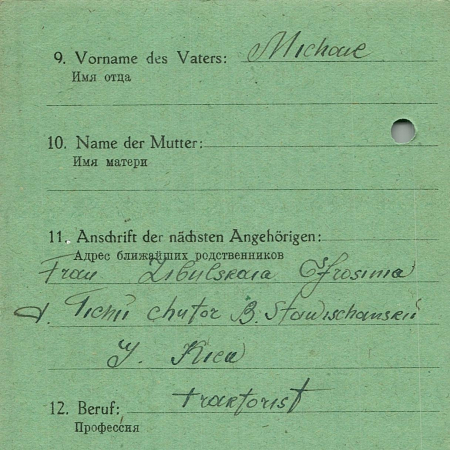 9. Vorname des Vaters: Michael
Имя отца
10. Name der Mutter:
Имя матери
11. Anschrift der nächsten Angehörigen:
Адрес ближайших родственников
Frau Zibulskaia Efrosinia
d. Tichi chutor B. Stawischanskii
g. Kiew
12. Beruf: traktorist
Профессия